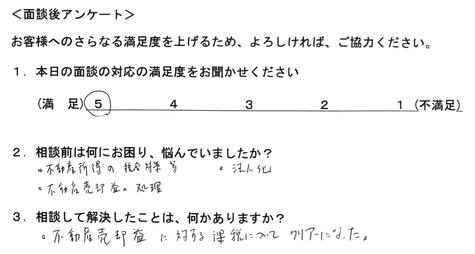 ＜面談後アンケート＞
お客様へのさらなる満足度を上げるため、よろしければ、ご協力ください。
１．本日の面談の対応の満足度をお聞かせください
（満　足）５　４　３　２　１（不満足）
２．相談前は何にお困り、悩んでいましたか？
。不動産所得の税金対策等　。法人化
。不動産売却益の処理
３．相談して解決したことは、何かありますか？
。不動産売却益に対する課税について クリアーになった。